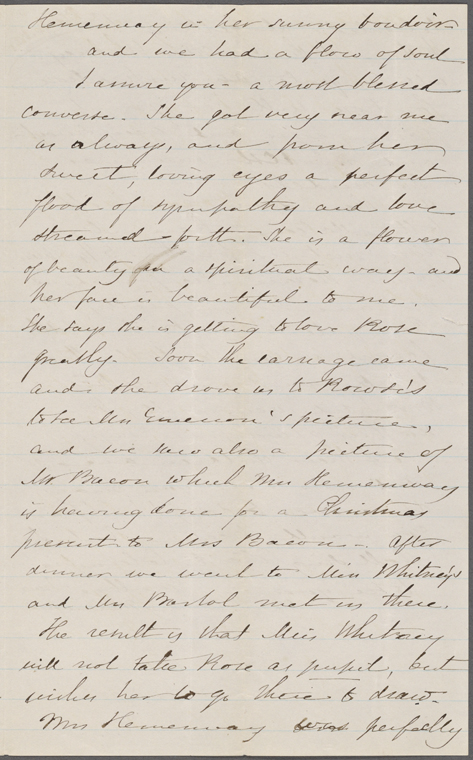 Hemenway in her sunny boudoir
and we had a flow of soul
I assure you - a most blessed
converse. She got very near me
as always, and from her
sweet, loving eyes a perfect
flood of sympathy and love
streamed forth. She is a flower
of beauty in a spiritual way - and
her face is beautiful to me.
She says she is getting to love Rose
greatly. Soon the carriage came
and she drove us to Rowse's
to see Mr Emerson's picture,
and we saw also a picture of
Mr Bacon which Mrs Hemenway
is having done for a Christmas
present to Mrs Bacon - After
dinner we went to Miss Whitney's
and Mrs Bartol met us there.
The result is that Miss Whitney
will not take Rose as pupil, but
wishes her to go there to draw.
Mrs Hemenway was perfectly